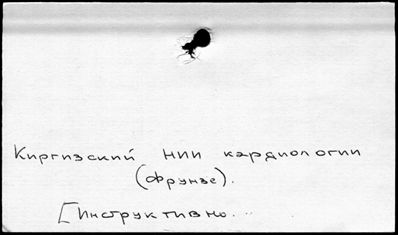 Киргизский НИИ кардиологии
(Фрунзе).
[Инструктивно...